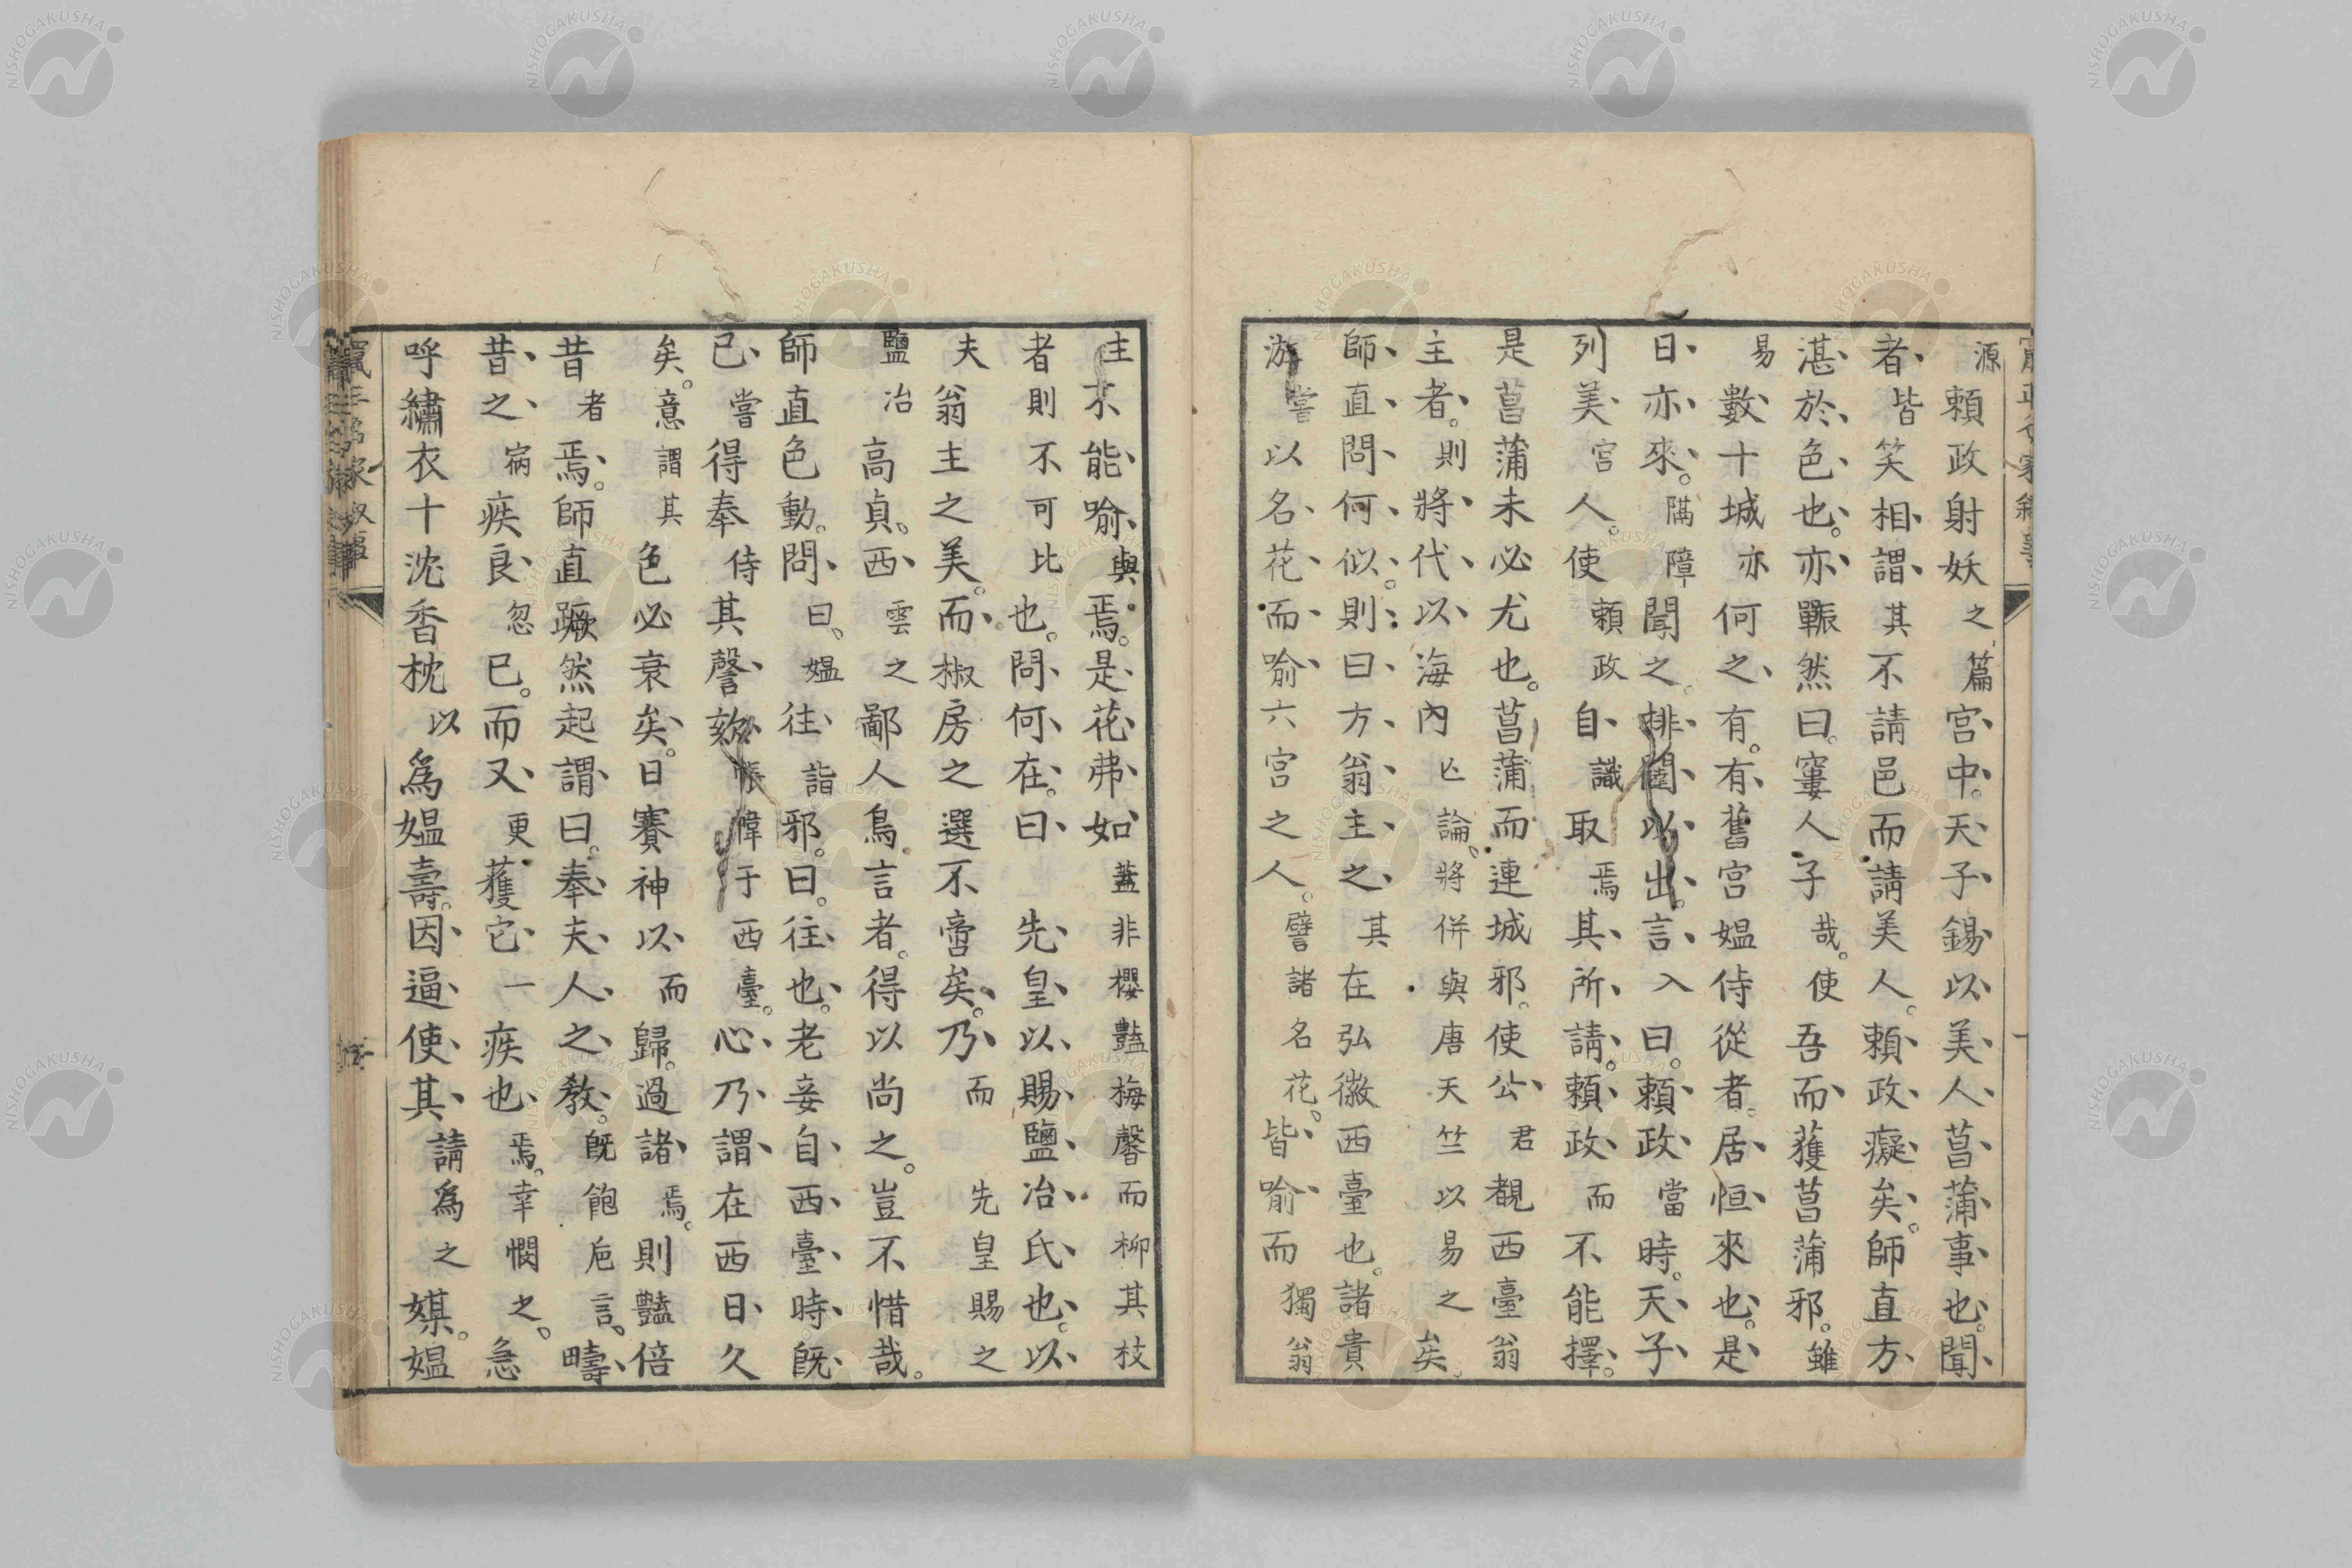 源頼政射妖之篇宮中天子錫以美人菖蒲事也聞
者皆笑相謂其不請邑而請美人頼政癡矣師直方
湛於色也亦囅然曰窶人子哉使吾而獲菖蒲邪雖
易數十城亦何之有有舊宮媼侍從者居恒來也是
日亦來隔障聞之排闥以出言入曰頼政當時天子
列美宮人使頼政自識取焉其所請頼政而不能擇
是菖蒲未必尤也菖蒲而連城邪使公君覩西臺翁
主者則將代以海內亡論將併與唐天竺以易之矣
師直問何似則曰方翁主之其在弘徽西臺也諸貴
游嘗以名花而喻六宮之人譬諸名花皆喻而獨翁
主不能喻與焉是花弗如蓋非櫻豔梅馨而柳其枝
者則不可比也問何在曰先皇以賜鹽冶氏也以
夫翁主之美而椒房之選不啻矣乃而先皇賜之
鹽冶高貞西雲之鄙人鳥言者得以尚之豈不惜哉
師直色動問曰媼往詣邪曰往也老妾自西臺時既
已嘗得奉侍其謦欬帳幃于西臺心乃謂在西日久
矣意謂其色必衰矣日賽神以而歸過諸焉則豔倍
昔者焉師直蹶然起謂曰奉夫人之教既飽卮言疇
昔之病疾良忽已而又更獲它一疾也焉幸憫之急
呼繡衣十沈香枕以為媼壽因逼使其請為之媒媼